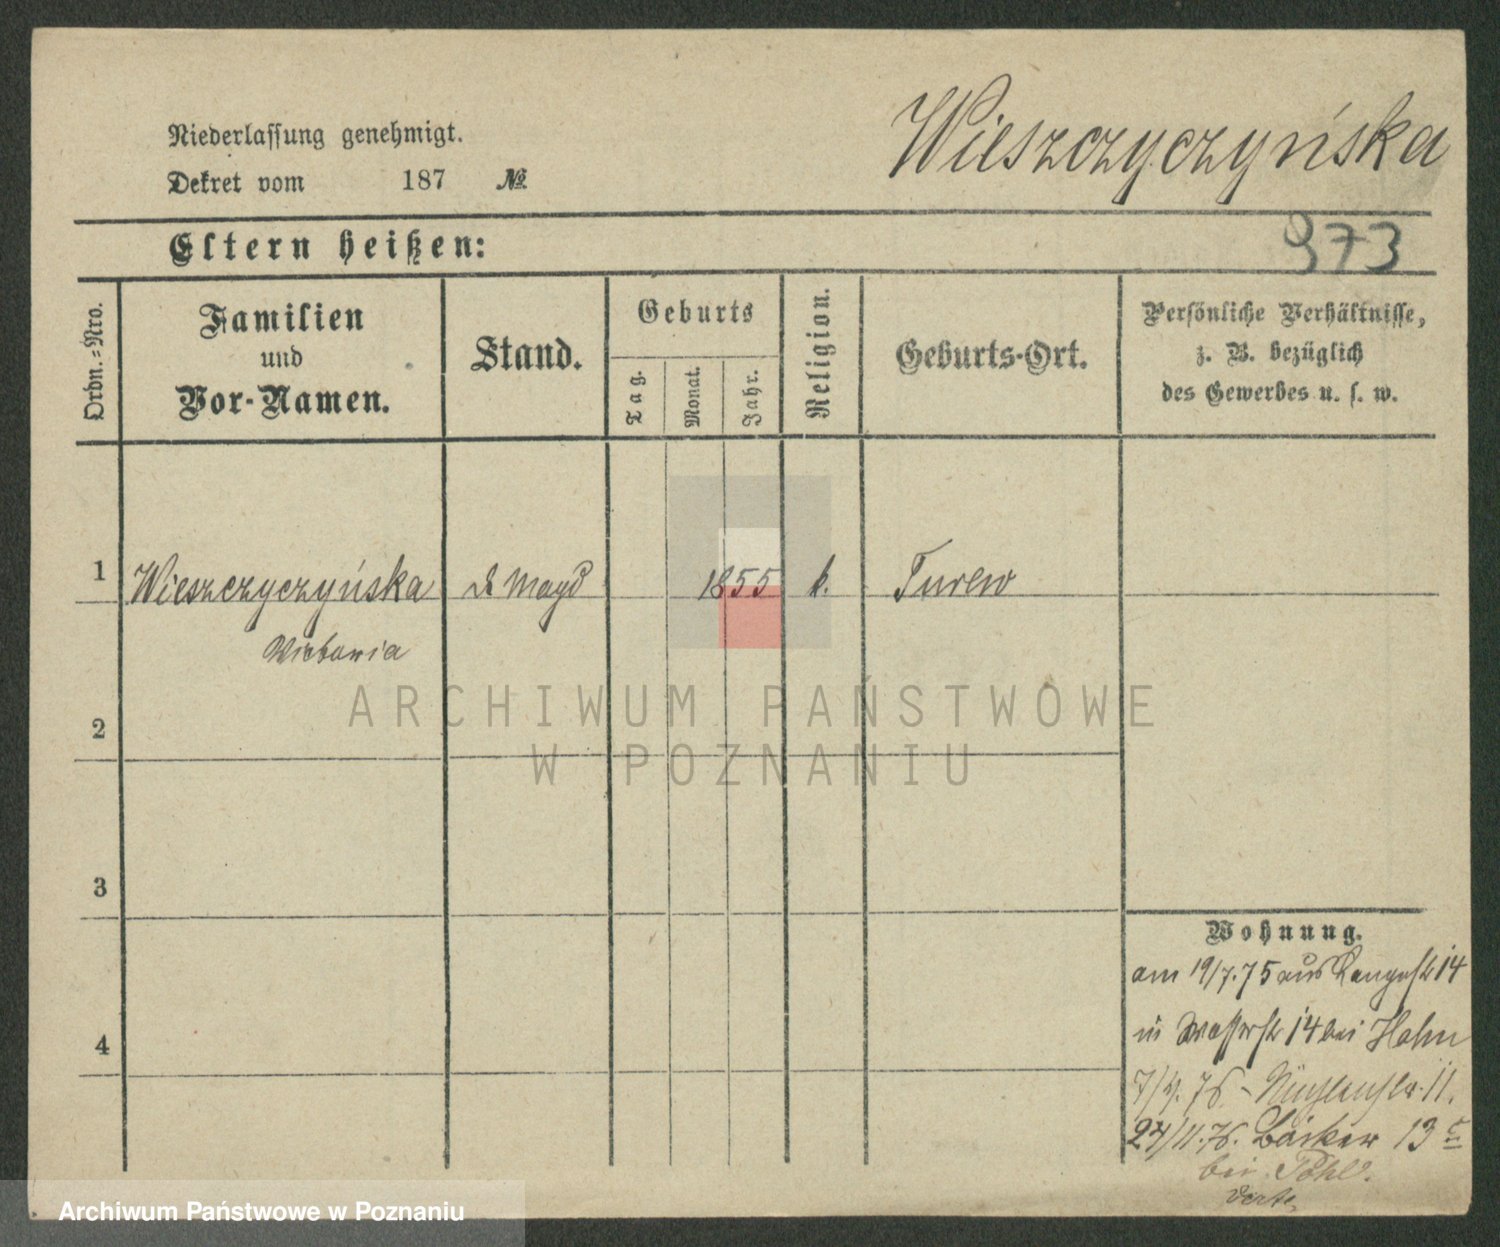 Wieszczyczyńska
Niederlassung genehmigt.
Dekret vom 187 №
973
Eltern heißen:
Ordn.-Nro.
Familien
und
Vor-Namen.
Stand.
Geburts
Tag.
Monat.
Jahr.
Religion.
Geburts-Ort.
Persönliche Verhältnisse,
z. B. bezüglich
des Gewerbes u. s. w.
1 Wieszczyczyńska Magd 1855 k. Turew
Victoria
2
3
4
Wohnung.
am 19/7.75 aus Langestr 14
in Wasserstr 14 bei Hahn
7/4. 76 - Mühlenstr. 11.
24/11.76. Bäcker 13
bei Pohl.
verte
ARCHIWUM PAŃSTWOWE
W POZNANIU
Archiwum Państwowe w Poznaniu